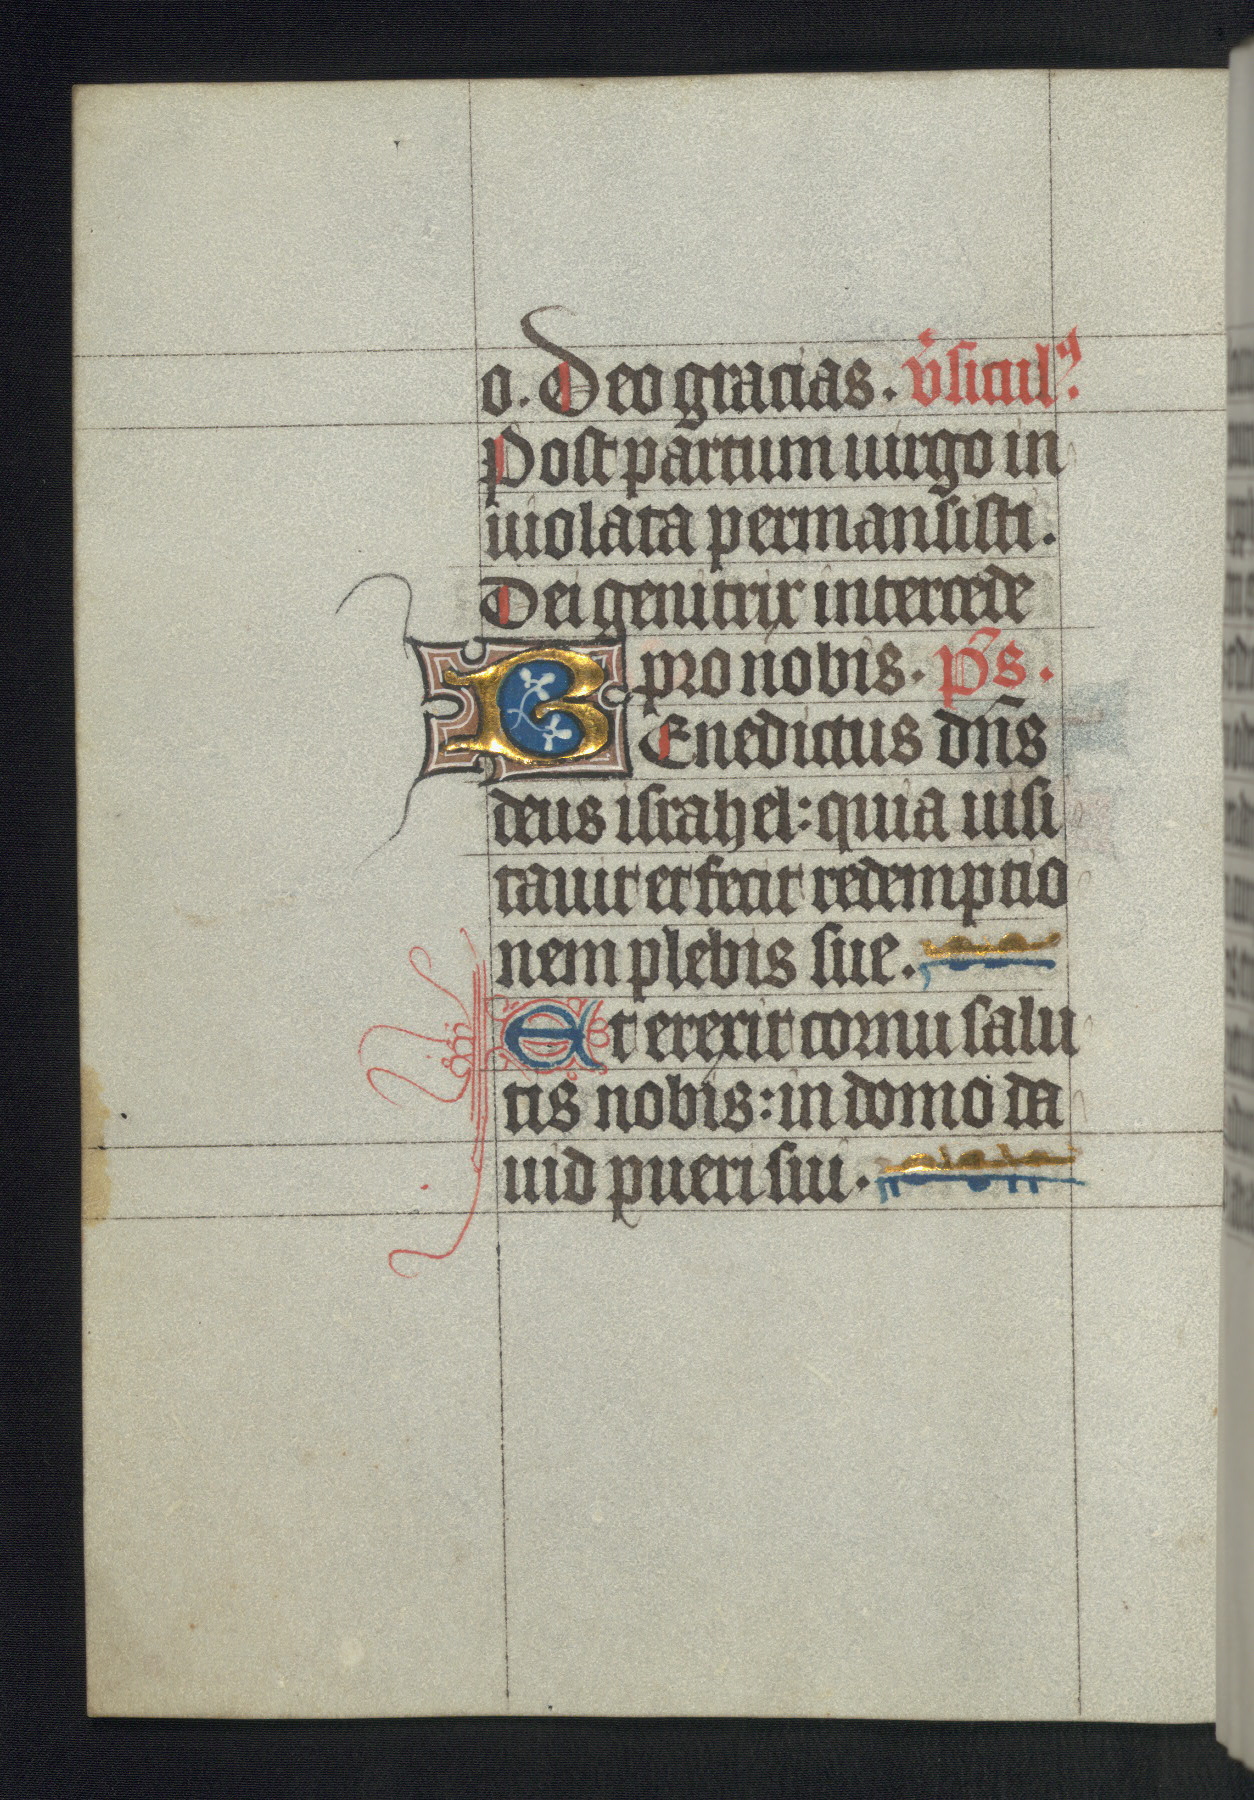 o. Deo gracias. v̄sicul⁹.
Post partum uirgo in
uiolata permansisti.
Dei genitrix intercede
pro nobis. p̄s.
BEnedictus dn̄s
deus israhel: quia uisi
tauit et fecit redemptio
nem plebis sue.
Et erexit cornu salu
tis nobis: in domo da
uid pueri sui.